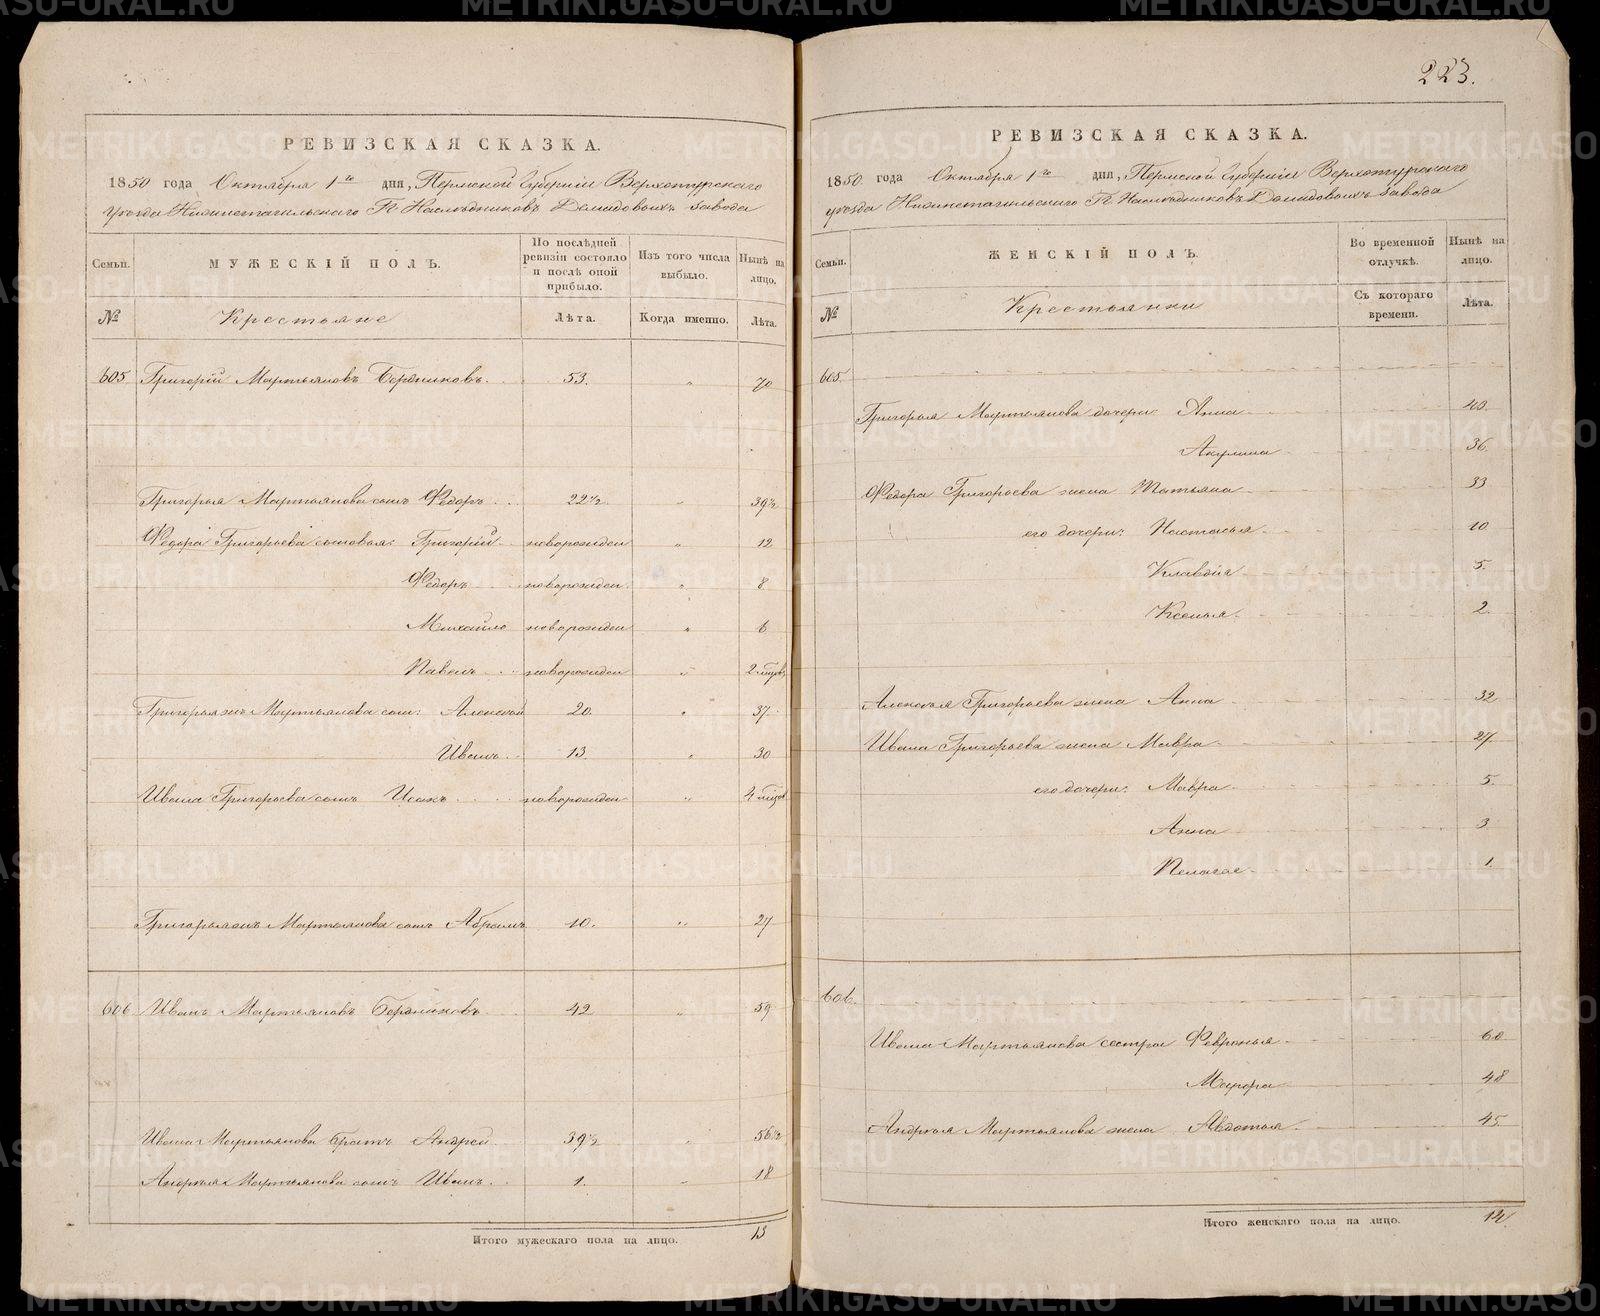 РЕВИЗСКАЯ СКАЗКА.
1850 года Октября 1го дня, Пермской Губернии Верхотурского
уезда Нижнетагильского Гг. Наследников Демидовых завода
Семьи.
МУЖЕСКІЙ ПОЛЪ.
По послѣдней ревизіи состояло и послѣ оной прибыло.
Изъ того числа выбыло.
Нынѣ на лицо.
№
Крестьяне
Лѣта.
Когда именно.
Лѣта.
605 Григорій Мартьяновъ Бердниковъ. 53. " 70
Григорья Мартьянова сынъ Федоръ 22½ " 39½
Федора Григорьева сыновья: Григорій новорожден " 12
Федоръ новорожден " 8
Михайло новорожден " 6
Павелъ новорожден " 2
Григорья Мартьянова сын: Алексей 20 " 37
Иванъ 13. " 30
Ивана Григорьева сынъ Исакъ новорожден "
Мартьянова сынъ Абрамъ 10. " 27
606 Иванъ Мартьяновъ Бердниковъ 42 " 59
Ивана Мартьянова братъ Андрей 39½ " 56½
Андрея Мартьянова сынъ Иванъ 1. " 18
Итого мужескаго пола на лицо. 13
223.
РЕВИЗСКАЯ СКАЗКА.
1850 года Октября 1го дня, Пермской Губерніи Верхотурского
уезда Нижнетагильского Гг. Наследниковъ Демидовыхъ завода
Семьи.
ЖЕНСКІЙ ПОЛЪ.
Во временной отлучкѣ.
Нынѣ на лицо.
№
Крестьянки
Съ котораго времени.
Лѣта.
605.
Григорья Мартьянова дочери: Анна 40
Акулина 36
Федора Григорьева жена Татьяна 33
его дочери: Настасья 10
Клавдія 5
Ксенья 2
Алексея Григорьева жена Анна 32
Ивана Григорьева жена Мавра 27
его дочери: Мавра 5
Анна 3
Пелагея 1
606.
Ивана Мартьянова сестры Февронья 60
Марфа 48
Андрея Мартьянова жена Авдотья 45
Итого женскаго пола на лицо. 14
METRIKI.GASO-URAL.RU